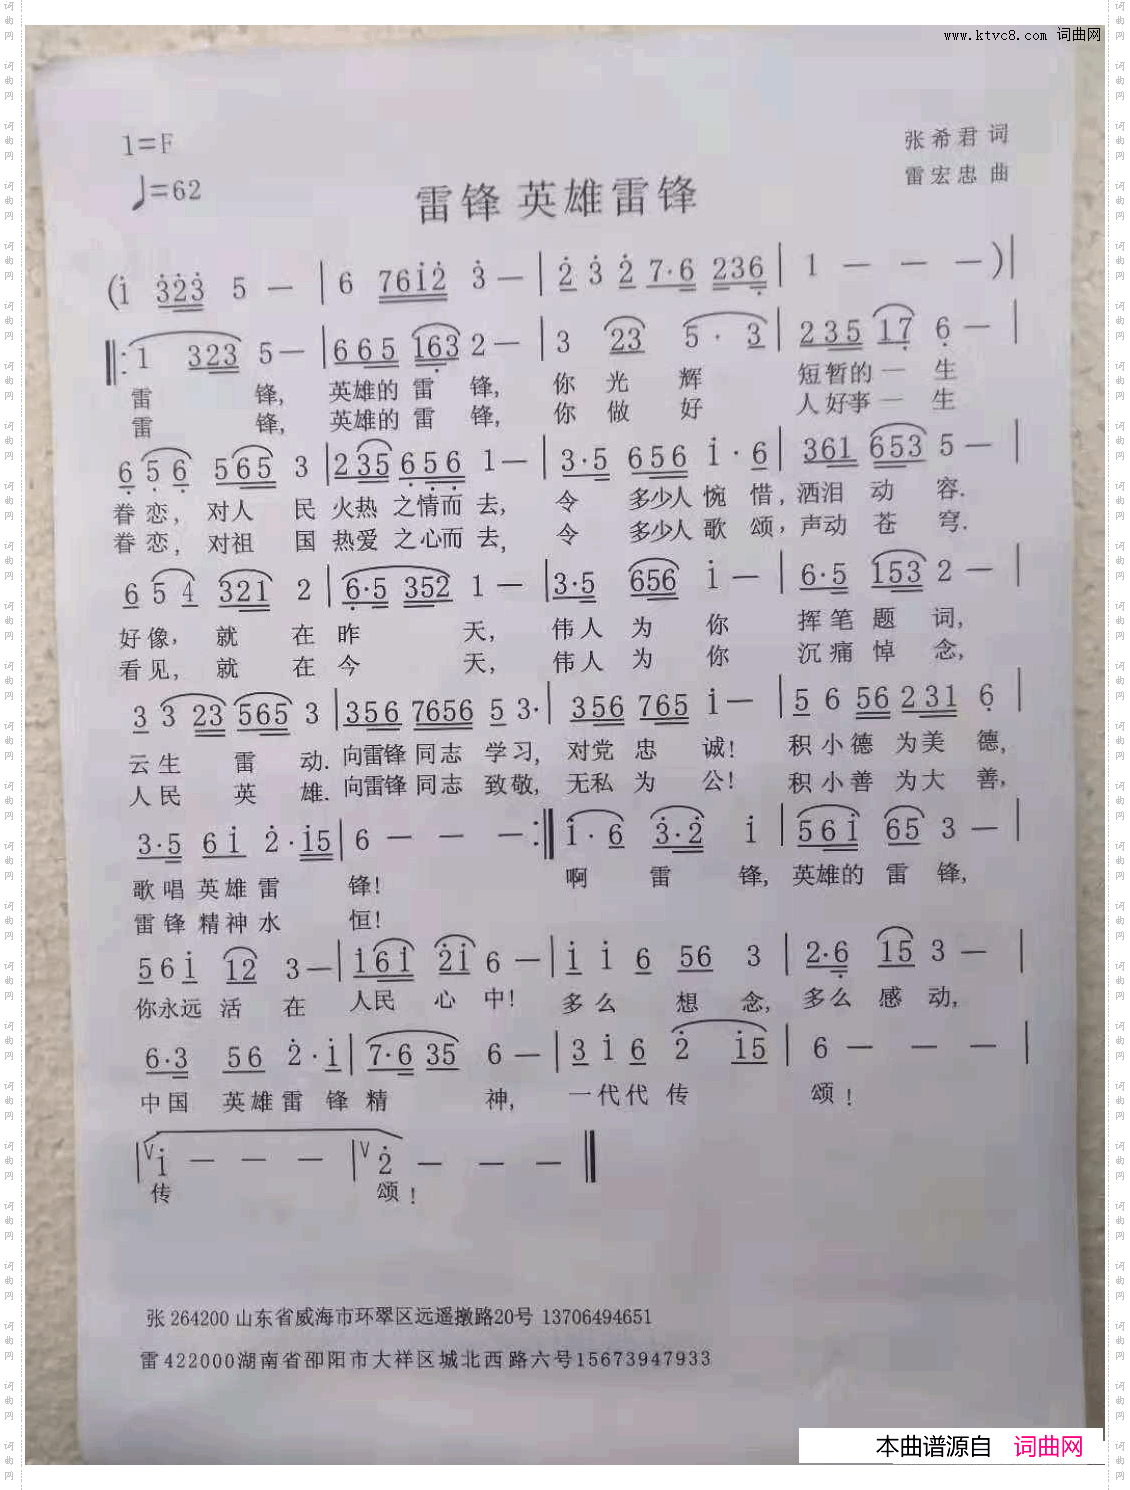 www.ktvc8.com 词曲网
1=F
张希君 词
♩=62
雷宏忠 曲
雷锋 英雄雷锋
(i 323 5 — | 6 7612 3 — | 2 3 2 7·6 236 | 1 — — —)|
‖: 1 323 5— | 665 163 2— | 3 23 5· 3 | 235 17 6— |
雷 锋, 英雄的 雷 锋, 你 光 辉 短暂的 一 生
雷 锋, 英雄的 雷 锋, 你 做 好 人好事 一 生
6 5 6 565 3 | 235 656 1— | 3·5 656 i·6 | 361 653 5— |
眷恋, 对人 民 火热 之情而 去, 令 多少人 惋 惜, 洒泪 动 容.
眷恋, 对祖 国 热爱 之心而 去, 令 多少人 歌 颂, 声动 苍 穹.
6 5 4 321 2 | 6·5 352 1— | 3·5 656 i— | 6·5 153 2— |
好像, 就 在 昨 天, 伟人 为 你 挥笔 题 词,
看见, 就 在 今 天, 伟人 为 你 沉痛 悼 念,
3 3 23 565 3 | 356 7656 5 3· | 356 765 i— | 5 6 56 231 6 |
云生 雷 动. 向雷锋 同志 学习, 对党 忠 诚! 积小德 为美 德,
人民 英 雄. 向雷锋 同志 致敬, 无私 为 公! 积小善 为大 善,
3·5 6i 2·i5 | 6 — — — :‖ i·6 3·2 i | 56i 65 3— |
歌唱 英雄雷 锋! 啊 雷 锋, 英雄的 雷 锋,
雷锋 精神永 恒!
56i 12 3— | i6i 2i 6— | i i 6 56 3 | 2·6 15 3— |
你永远 活 在 人民 心 中! 多么 想 念, 多么 感 动,
6·3 56 2·i | 7·6 35 6— | 3 i 6 2 i5 | 6 — — — |
中国 英雄雷 锋 精 神, 一代代 传 颂!
|V i — — — |V 2 — — — ‖
传 颂!
张 264200 山东省威海市环翠区远遥墩路20号 13706494651
雷 422000湖南省邵阳市大祥区城北西路六号15673947933
本曲谱源自 词曲网